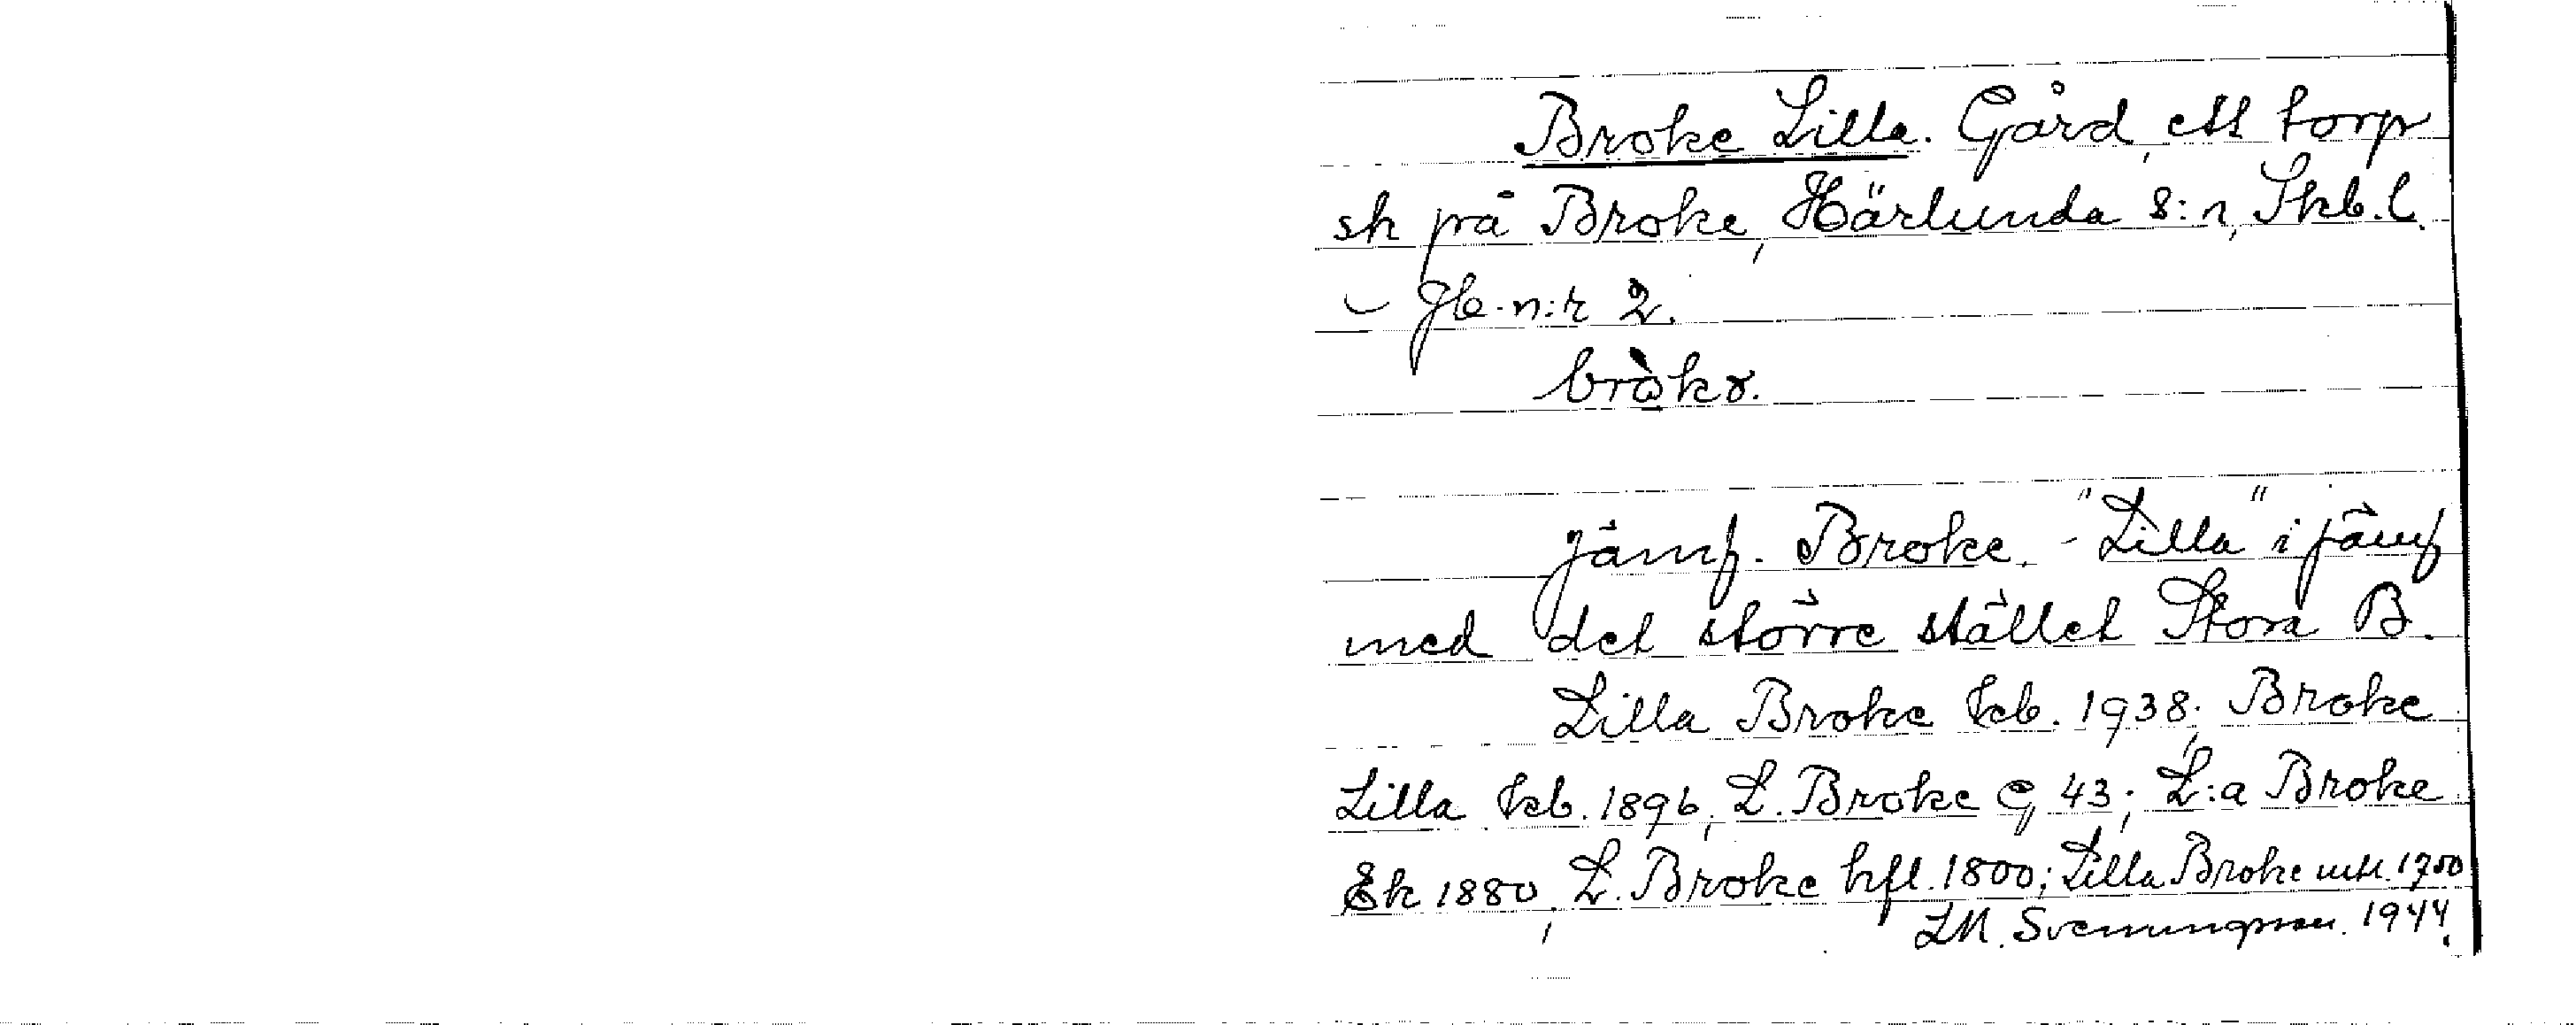 Broke Lilla. Gård, ett torp
sk på Broke, Härlunda s:n, Skb. l.
Jb.n:r 2.
bròkɤ.
Jämf. Broke. - "Lilla" i jämf
med det större stället Stora B.
Lilla Broke kb. 1938; Broke
Lilla kb. 1896; L. Broke G 43; L:a Broke
Ek 1880; L. Broke hfl. 1800; Lilla Broke mtl. 1750
LM. Svenungsson. 1944.